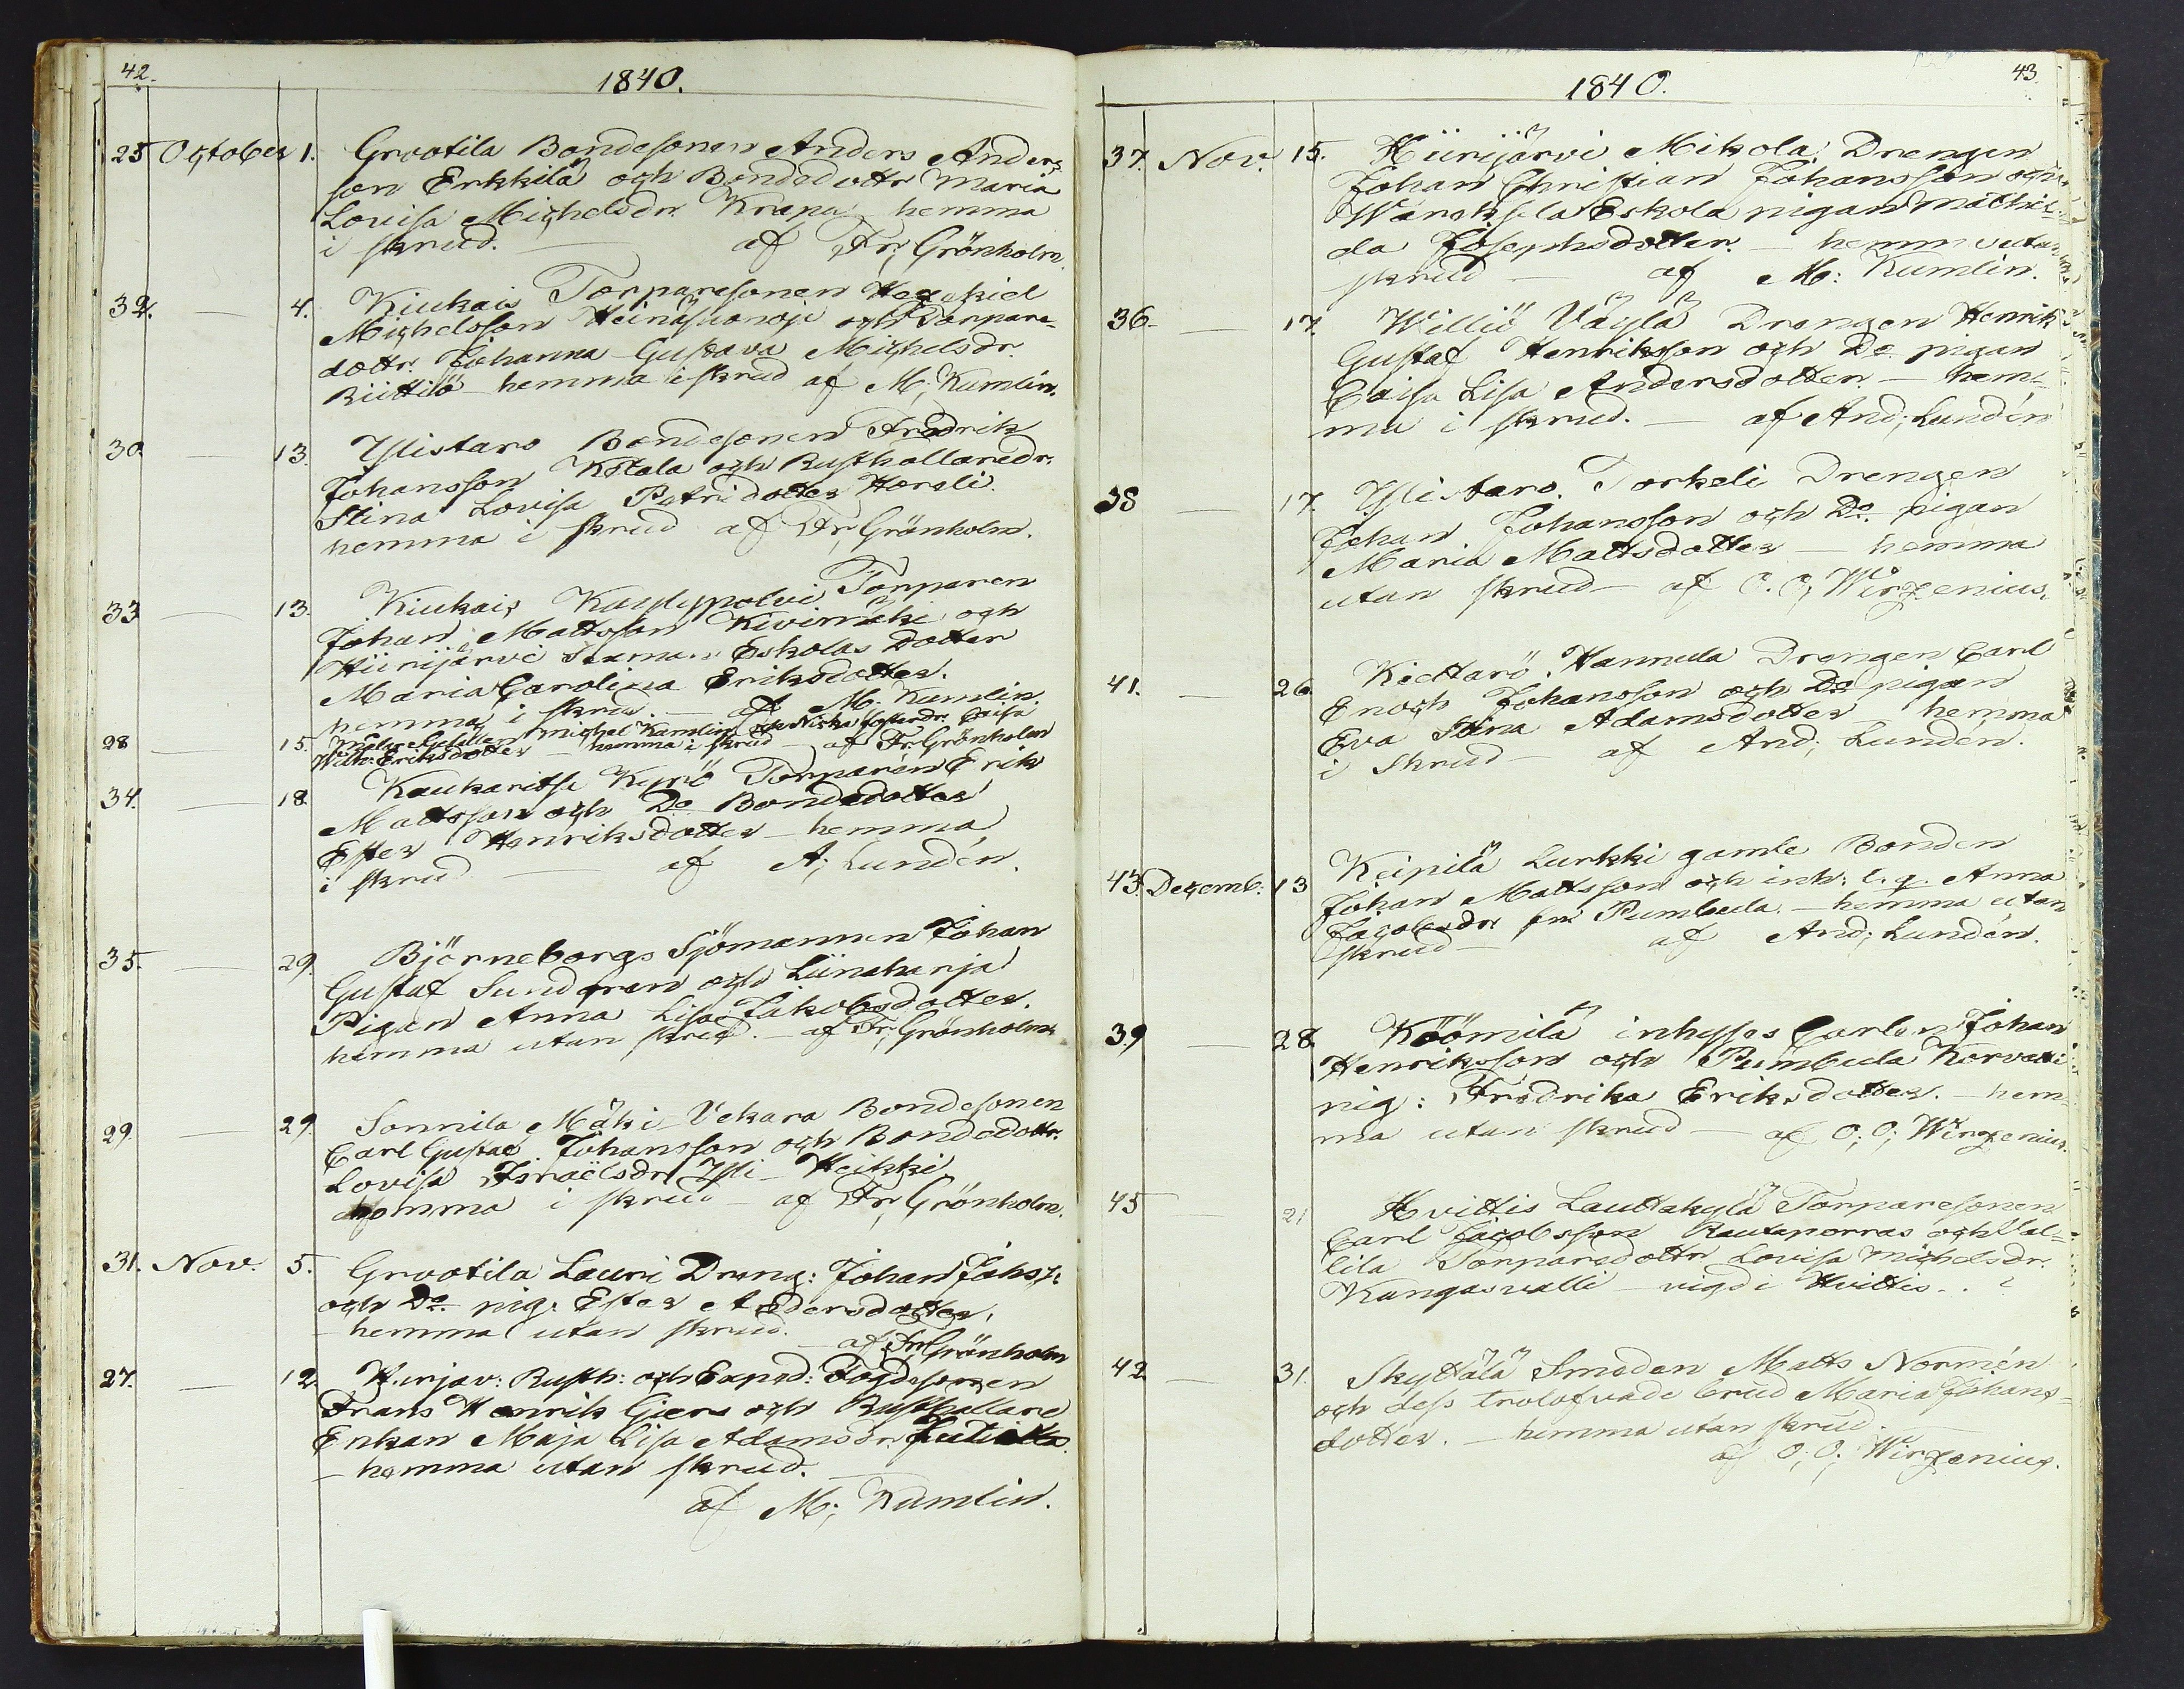 42.
1840.
25 October 1. Grootila Bondesonen Anders Anders
son Erkkilä och Bondedottr Maria
Lovisa Michelsdr. Krapu hemma
i skrud. — af Fr; Grönholm.
32. — 4. Kiukais Torparesonen Hezekiel
Michelsson Heinisuonoja och Torpare
dottr. Johanna Gustava Michelsdr.
Riittiö — hemma i skrud af M; Kumlin.
30. — 13. Ylistaro Bondesonen Fredrik
Johansson Kötala och Rusthollaredr.
Stina Lovisa Petri dotter Horeli.
hemma i skrud af Fr; Grönholm.
33 — 13. Kiukais Torparen
Johan Mattsson Kivimäki och
Hiirijärvi Eskolas Dotter
Maria Carolina Eriksdotter.
hemma i skrud. — af M. Kumlin
28 — 15. Michel Kamlin
Wilh: Eriksdotter — hemma i skrud — af Fr: Grönholm
34. — 18. Kaukaritsa Kyrö Torparen Erik
Mattsson och Do Bondedotter
Ester Henriksdotter — hemma
i skrud — af A; Lundén.
35. — 29. Björneborgs Sjömannen Johan
Gustaf Sundgren och Liinaharja
Pigan Anna Lisa Jakobsdotter.
hemma utan skrud. — af Fr; Grönholm
29. — 29. Sonnila Mäki-Vekara Bondesonen
Carl Gustaf Johansson och Bondedottr.
Lovisa Israëlsdr. Yli-Heikki
hemma i skrud — af Fr; Grönholm.
31. Nov. 5. Grootila Lauri Dreng: Johan Johss:
och Do pig: Ester Andersdotter,
— hemma utan skrud.
— af Fr; Grönholm
27. — 12. Harjav: Rusth: och Exped: Fogdesonen
Frans Henrik Giers och Rusthollare
Enkan Maja Lisa Adamsdr.
— hemma utan skrud.
af M; Kumlin.
43.
1840.
37. Nov. 15. Hiirijärvi Mikola Drengen
Johan Christian Johansson och
Eskola pigan Mathil
da Josephsdotter. — hemma utan
skrud — af M: Kumlin.
36. — 17. Williö Väylä Drengen Henrik
Gustaf Henriksson och Do pigan
Caisa Lisa Andersdotter — hem=
ma i skrud. — af And; Lundén
38 — 17. Ylistaro. Torkeli Drengen
Johan Johansson och Do. pigan
Maria Mattsdotter — hemma
utan skrud — af O. O; Wirzenius.
41. — 26. Kiettarö. Hannula Drengen Carl
Enoch Johansson och Do pigan
Eva Stina Adamsdotter hemma
i Skrud — af And; Lundén.
43. Decemb: 13 Keipilä Lurkki gamle Bonden
Johan Mattsson och inh: l. q. Anna
Jacobsdr. fr: Pumbula. — hemma utan
skrud — af And; Lundén.
39 — 28. Köömilä inhyses Carlen Johan
Henriksson och Pumbula Korvati
pig: Fredrika Eriksdotter. — hem=
ma utan skrud — af O; O; Wirzenius.
45 — 21 Hvittis Lauttakylä Torparesonen
Carl Jacobsson Rautaporras och Val=
lila Torparedottr Lovisa Michelsdr.
Kangasvalli — vigd i Hvittis.
42 — 31. Skyttälä Smeden Matts Normén
och dess trolofvade brud Maria Johans=
dotter. — hemma utan skrud. —
af O; O; Wirzenius.